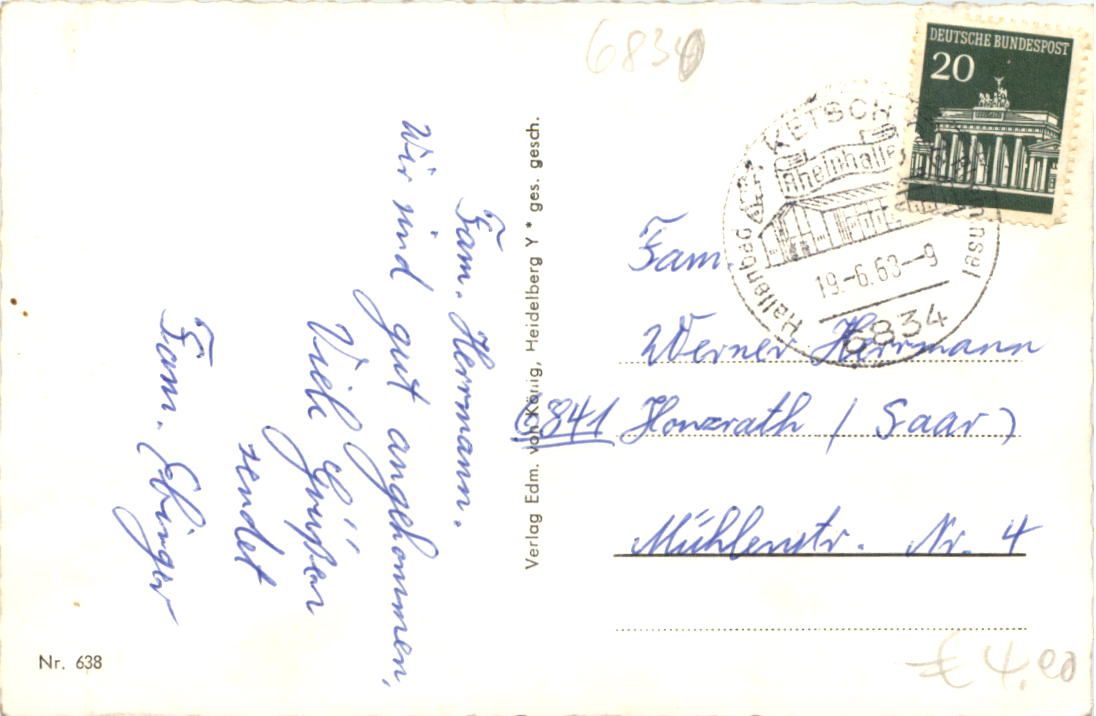 6834
DEUTSCHE BUNDESPOST
20
KETSCH
Rheinhalle
Hallenbad
19.-6.68--9
6834
Fam. Herrmann.
Wir sind gut angekommen,
Viele Grüßen
sendet
Fam. Ebinger
Verlag Edm. von König, Heidelberg Y * ges. gesch.
Fam.
Werner Herrmann
6841 Honzrath / Saar)
Mühlenstr. Nr. 4
Nr. 638
€ 4.00